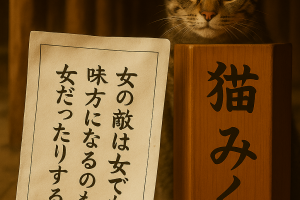 女の敵は女で
味方になるのも
女だったりする
猫み